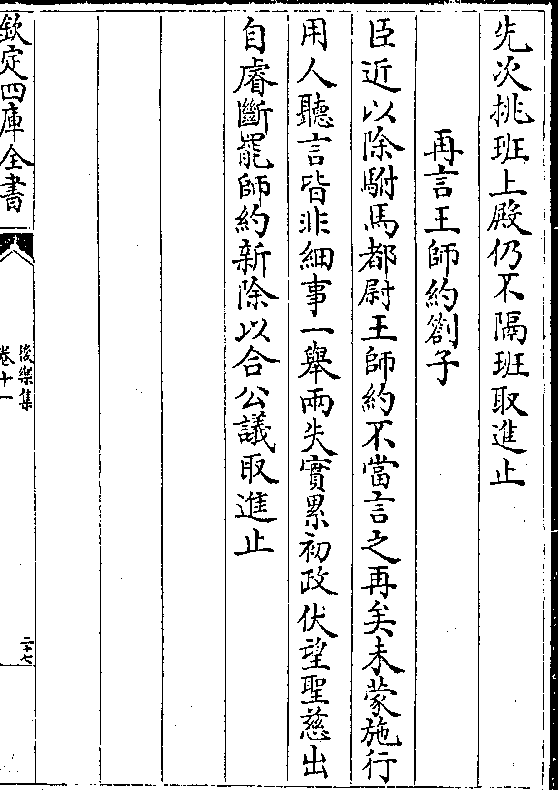 先次挑班上殿仍不隔班取進止
再言王師約劄子
臣近以除駙馬都尉王師約不當言之再矣未蒙施行
用人聽言皆非細事一舉兩失實累初政伏望聖慈出
自睿斷罷師約新除以合公議取進止
欽定四庫全書
後樂集
卷十一
二十七